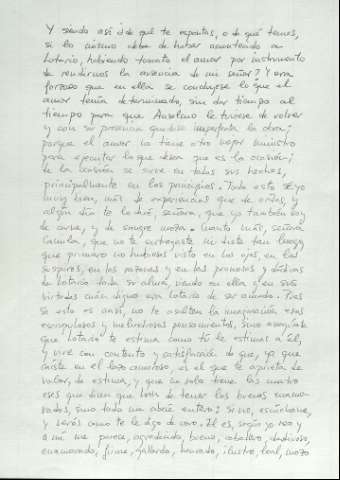 Y siendo así ¿de qué te espantas, o de qué temes,
si lo mismo debe de haber acontecido a
Lotario, habiendo tomado el amor por instrumento
de rendirnos la ausencia de mi señor? Y era
forzoso que en ella se concluyese lo que el
amor tenía determinado, sin dar tiempo al
tiempo para que Anselmo le tuviese de volver
y con su presencia quedase imperfecta la obra;
porque el amor no tiene otro mejor ministro
para ejecutar lo que desea que es la ocasión;
de la ocasión se sirve en todos sus hechos,
principalmente en los principios. Todo esto sé yo
muy bien, más de experiencia que de oídas, y
algún día te lo diré, señora, que yo también soy
de carne, y de sangre moza. Cuanto más, señora
Camila, que no te entregaste ni diste tan luego,
que primero no hubieses visto en los ojos, en los
suspiros, en las razones y en las promesas y dádivas
de Lotario toda su alma, viendo en ella y en sus
virtudes cuán digno era Lotario de ser amado. Pues
si esto es ansí, no te asalten la imaginación esos
escrupulosos y melindrosos pensamientos, sino asegúrate
que Lotario te estima como tú le estimas a él,
y vive con contento y satisfación de que, ya que
caíste en el lazo amoroso, es el que te aprieta de
valor, de estima, y que no solo tiene las cuatro
eses que dicen que han de tener los buenos enamo-
rados, sino todo un abecé entero: si no, escúchame,
y verás como te le digo de coro. Él es, según yo veo y
a mí me parece, agradecido, bueno, caballero, dadivoso,
enamorado, firme, gallardo, honrado, ilustre, leal, mozo